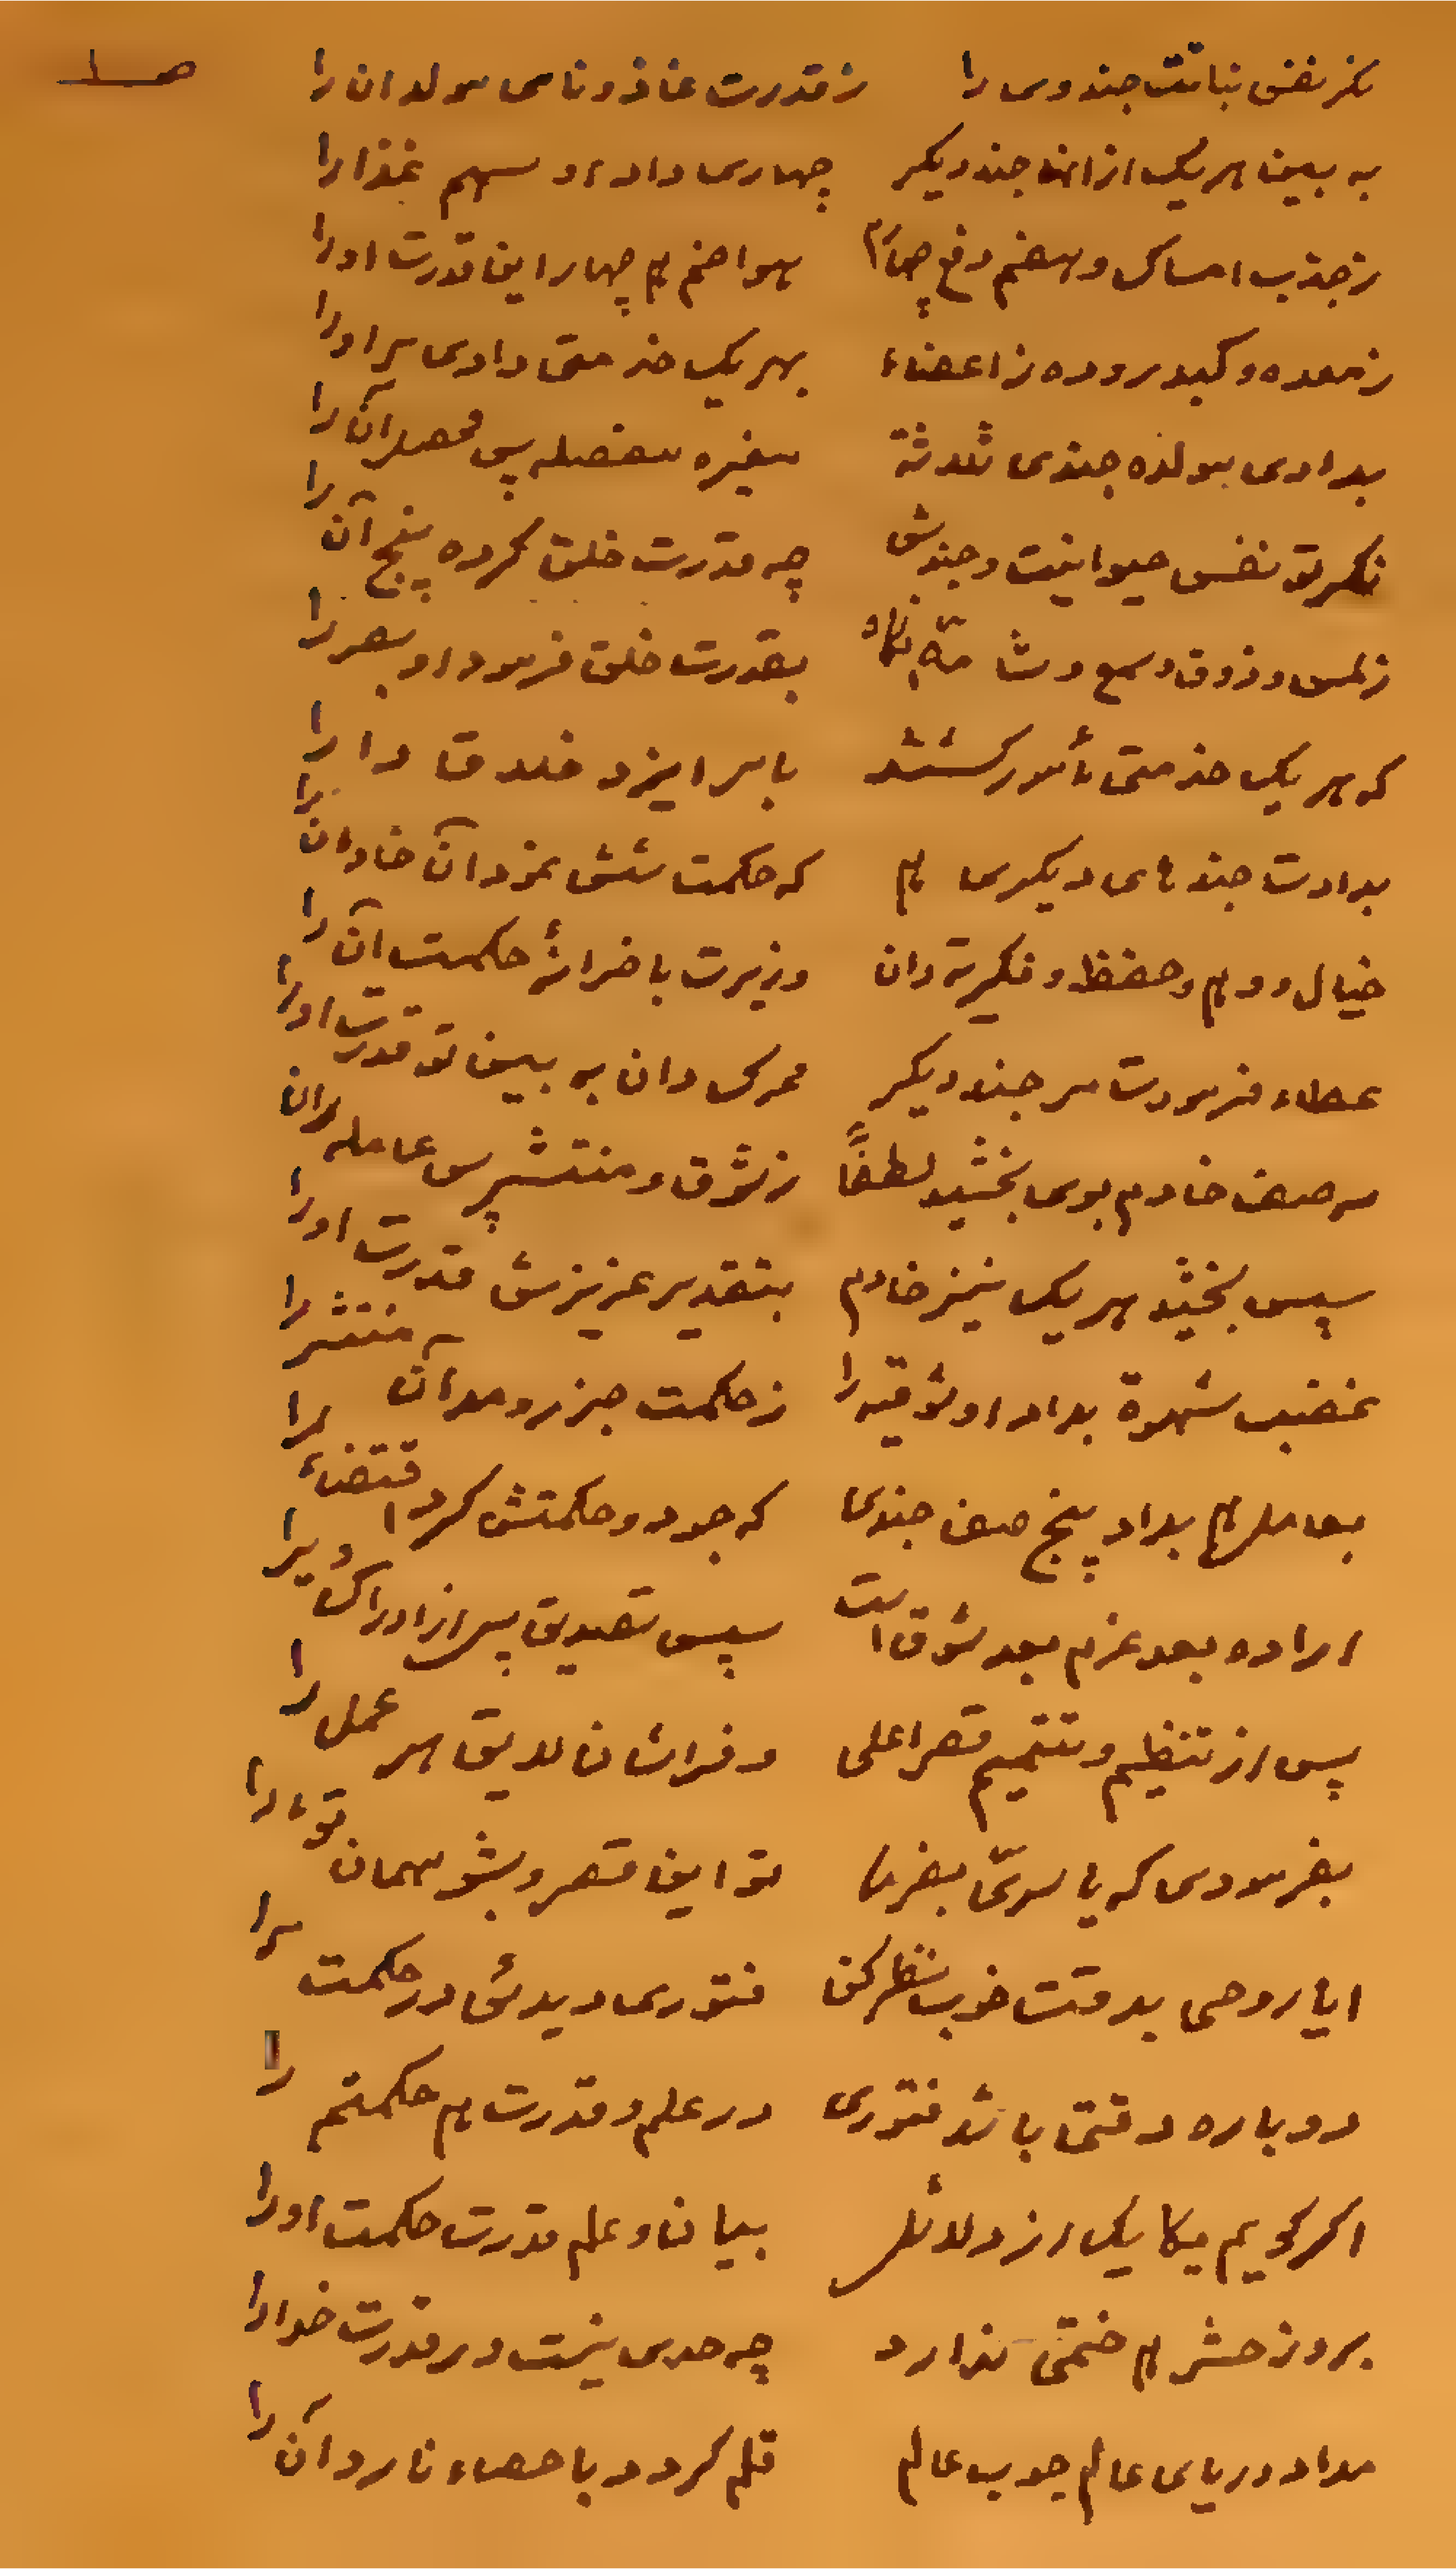 نکر نفس نباتت جند وی را    ز قدرت غاذ و نامی مولدان را
به بین هریک از انها جند دیکر    چهاری داد او سهم غذا را
ز جذب امساک و هضم دفع چهارم    هواضم هم چهار این قدرت اورا
ز معده و کبد روده ز اعضاء    بهر یک خدمتی دادی مر اورا
بدادی مولده جندی ثلاثة    مغیره مفصله پس محصل آن را
نکر تو نفس حیوانیت و جندش    چه قدرت خلق کرده پنج آن را
ز لمس و ذوق و سمع و شامّه نکاه    بقدرت خلق فرمود او بصر را
که هر یک خدمتی مأمور کشتند    بامر ایزد خلاق دا را
بدادت جند های دیکری هم    که حکمت شش نمود آن خادمان را
خیال و وهم و حفظ و فکرتة دان    وزیرت با خزانهٔ حکمت آن را
عطاء فرمودت سر جند دیکر    محرک دان به بین تو قدرت اورا
سه صف خادم بوی بخشید لطفاً    ز شوق و منتشر پس عامله مران را
سپس بخشید هر یک نیز خادم    بتقدیر عزیزش قدرت اورا
غضب شهوة بداد او شوقیه را    ز حکمت جزر و مد آن منتشر را
بعامل هم بداد پنج صف جندی    که جود و حکمتش کرد اقتضاء مرا
اراده بعد عزم بعد شوق است    سپس تصدیق پس از ادراک ویرا
پس از تنظیم و تتمیم قصر اعلی    و فراشان لایق هر عمل را
بفرمودی که یا سرّی بفرما    تو این قصر و بشو مهمان تو ما را
ایا روحی بدقت خوب نظر کن    فتوری دیدئ در حکمت مرا
دوباره دقتی باشد فتوری    در علم و قدرت هم حکمتم را
اکر کویم یکایک از دلائل    بیان و علم قدرت حکمت اورا
بروز حشر هم ختمی ندارد    چه حدی نیست در قدرت خدا را
مداد دریای عالم چوب عالم    قلم کردد باحصاء نارد آن را